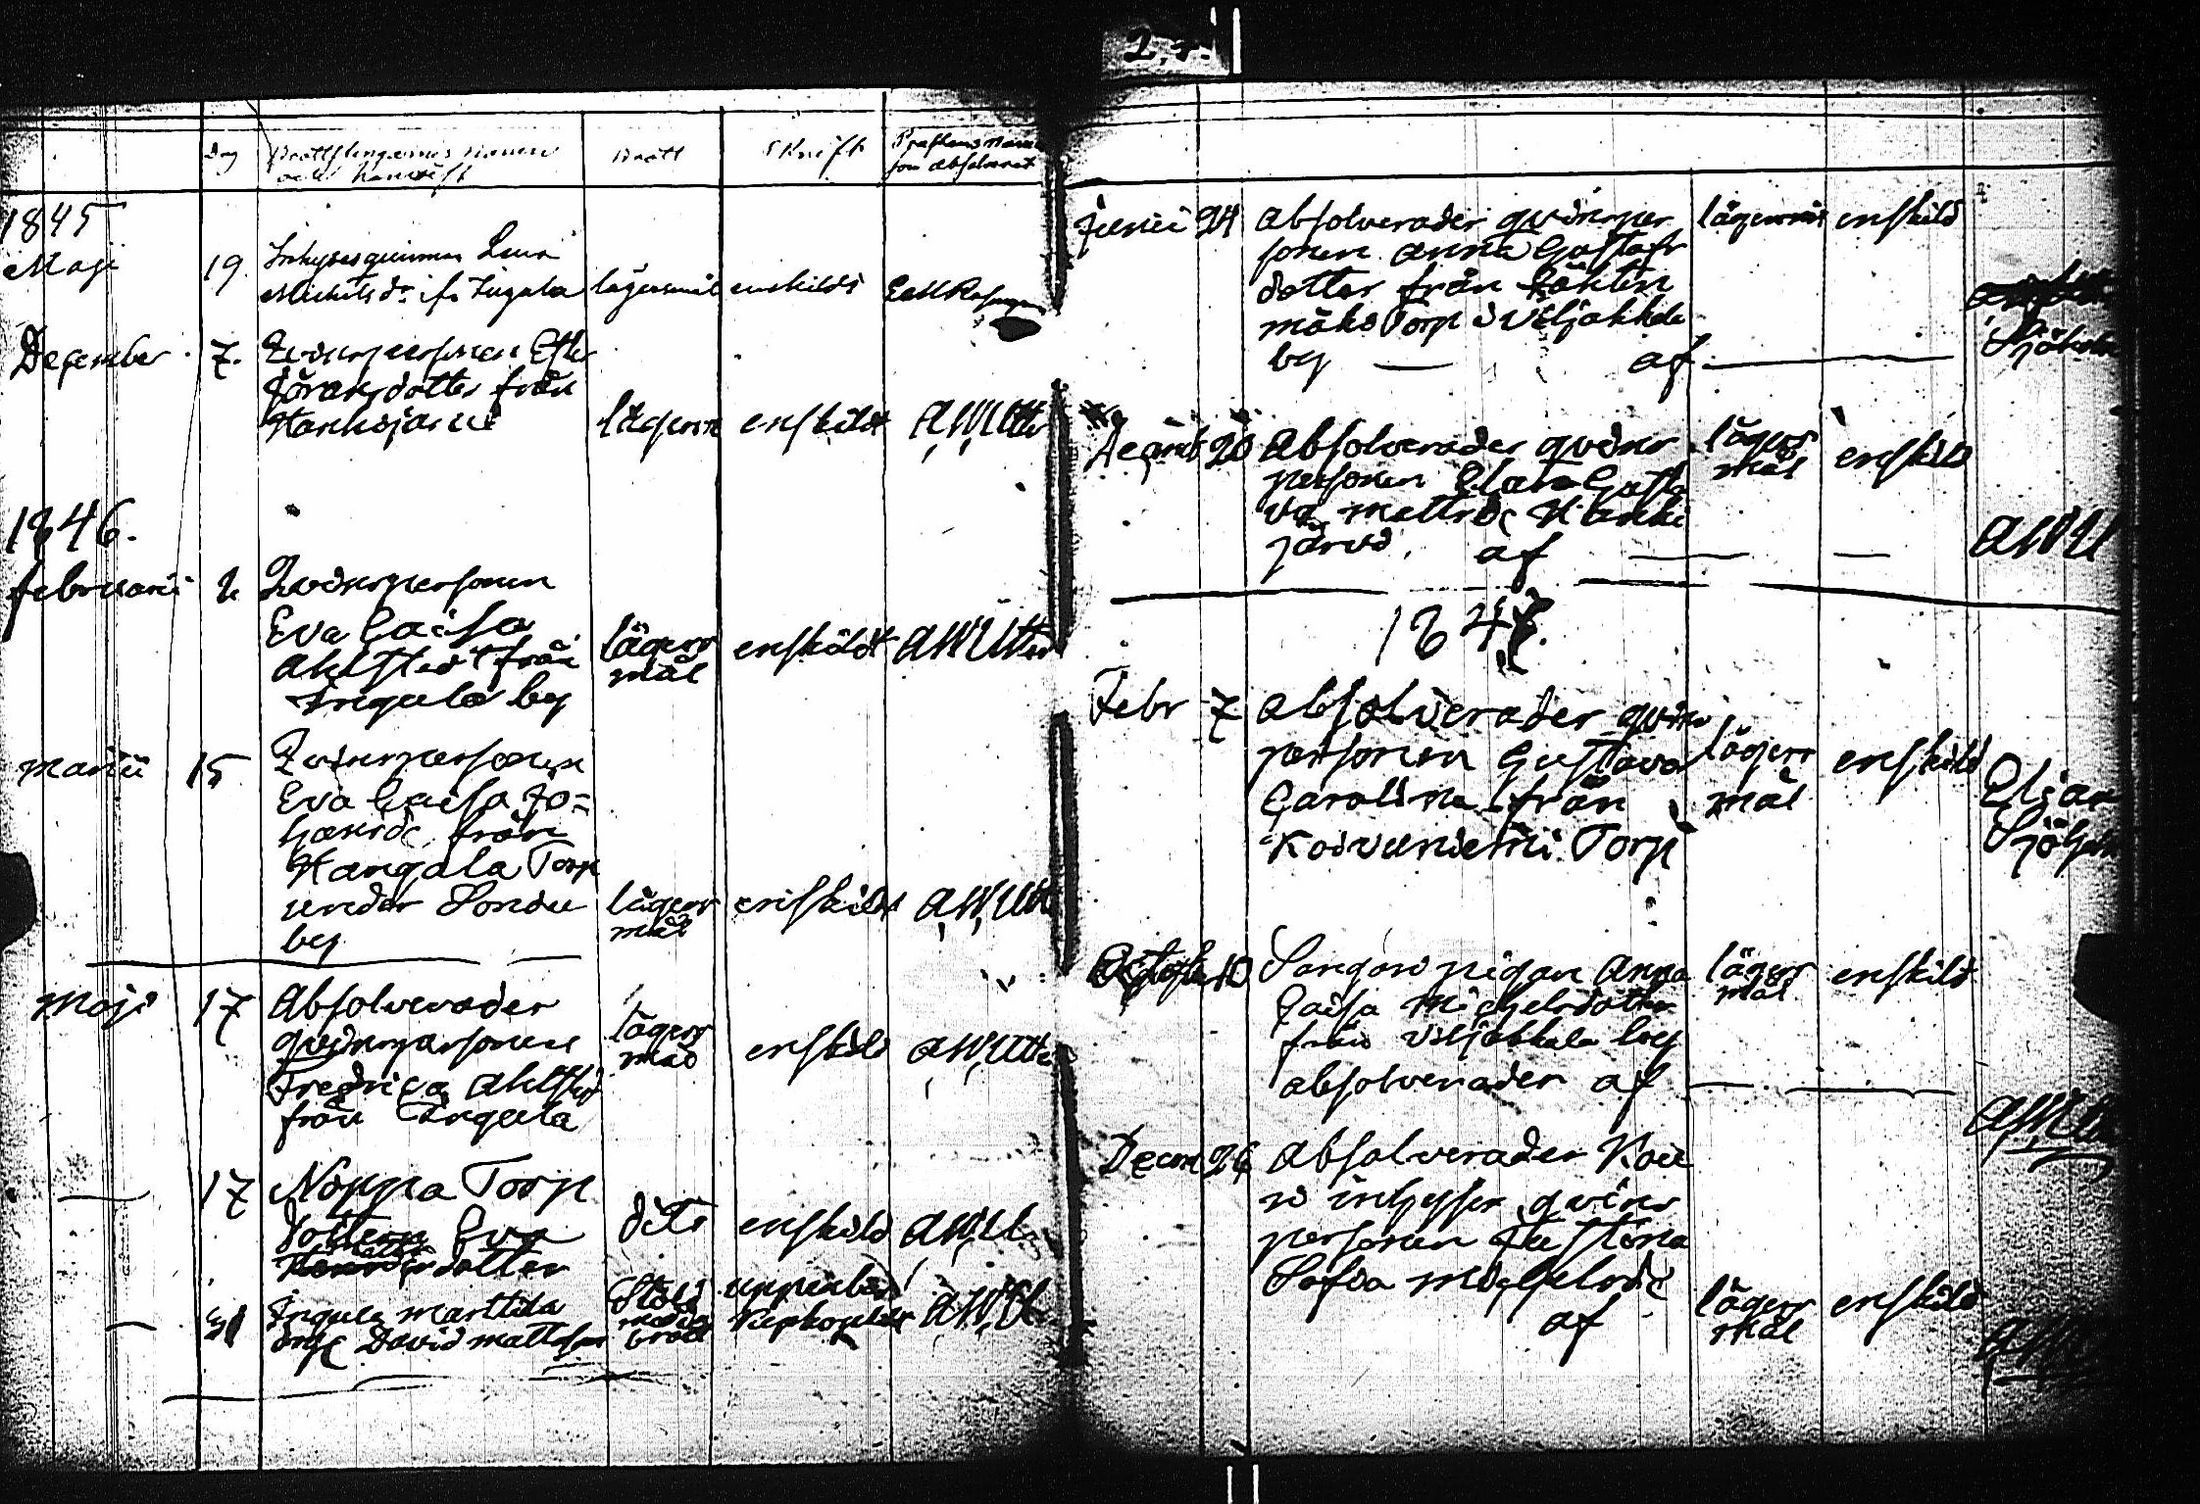 2,4.
Dag Brottslingarnes namn Brott Skrift Prestens namn
och hemvist som absolverat
1845
Maji 19. Inhyses quinnan Lena
Michels dr ifr Ingala lägersmål enskildt
December 7. Qvinspersonen
Göransdotter från
Hankijärvi lägersm enskildt AWUtter
1846.
februarii 2 Qvinspersonen
Eva Caisa
Ahlstedt från
Ingula by
lägers
mål enskildt AWUtter
martii 15 Qvinspersonen
Eva Caisa Jo=
hansdr från
Kangala Torp
under Sondu
by
lägers
mål enskildt AWUtt
Maji 17 Absolverades
qvinspersonen
Fredrica Ahlsted
från Ingula
lägers
mål enskild AWUtte
17 Noppa Torp
dottern Eva
Matts
dotter
dito enskild AWU
31 Ingula Marttila
drg David Mattsson
Stöld
brott
uppenbar
Kyrkoplikt AWU
Junii 24 Absolverades qvinsper
sonen Anna Gustafs
dotter från
mäki Torp i Viljakkala
by — af —
lägersmål enskild
Sjöholm
Decemb 20 Absolverades qvins
personen Gusta
va Mattsdr Hanki
järvi, af — —
lägers
mål enskild
AWU
1847.
Febr 7 Absolverades qvins
personen Gustava
Carolina från
Koivuniemi Torp
lägers
mål enskild
Elias
Sjöholm
October 10 Sangari pigan Anna
Caisa Michelsdotter
från Viljakkala by
absolverades af —
lägers
mål enskild
AWU
Decem 26 Absolverades
inhysses qvins
personen Justina
Sofia Michelsdr
af
lägers
mål enskild
AWU